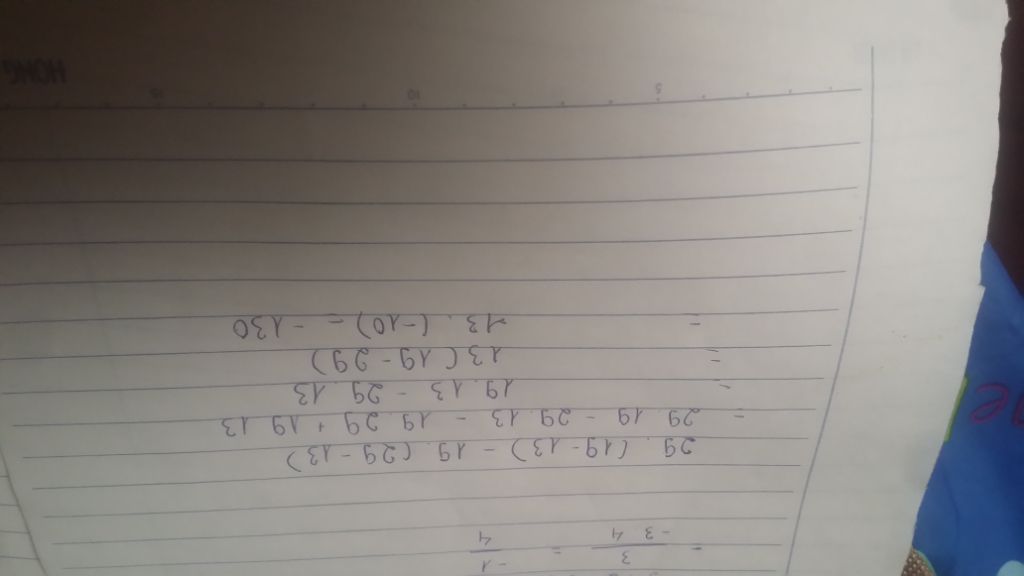 = 3 / -3.4 = -1 / 4
29 . (19 - 13) - 19 . (29 - 13)
= 29 . 19 - 29 . 13 - 19 . 29 + 19 . 13
= 19 . 13 - 29 . 13
= 13 (19 - 29)
= 13 . (-10) = - 130
5 10 15
HONG
ne